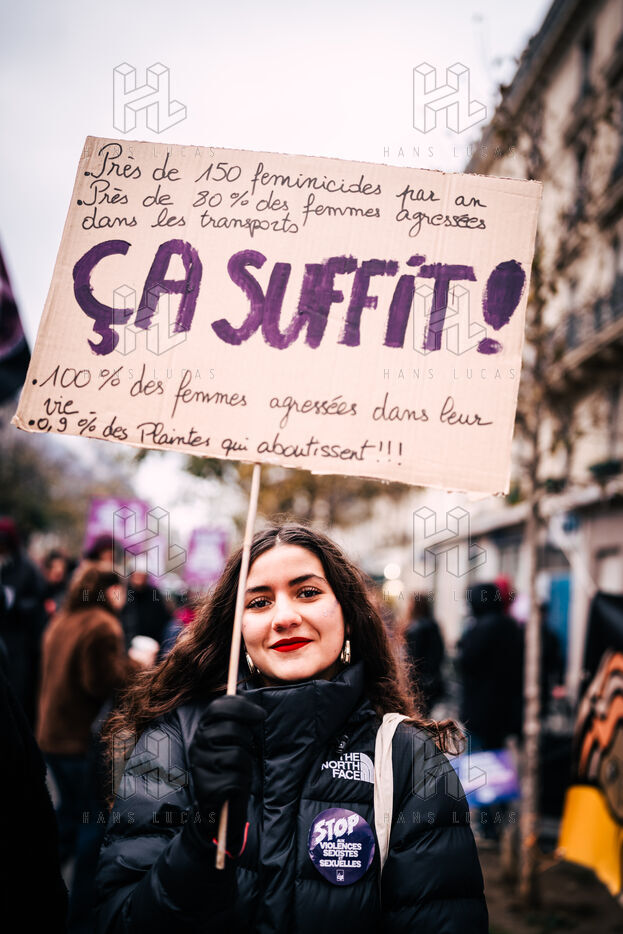 HANS LUCAS
HANS LUCAS
.Près de 150 feminicides par an
.Près de 80% des femmes agressées
dans les transports
ÇA SUFFIT!
HANS LUCAS
HANS LUCAS
.100% des femmes agressées dans leur
vie
.0,9% des Plaintes qui aboutissent!!!
HANS LUCAS
HANS LUCAS
THE
NORTH
FACE
STOP
AUX
VIOLENCES
SEXISTES
&
SEXUELLES
HANS LUCAS
HANS LUCAS